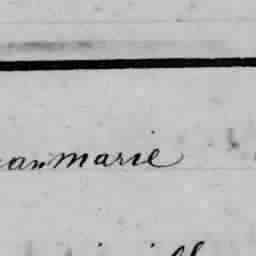 ean marie